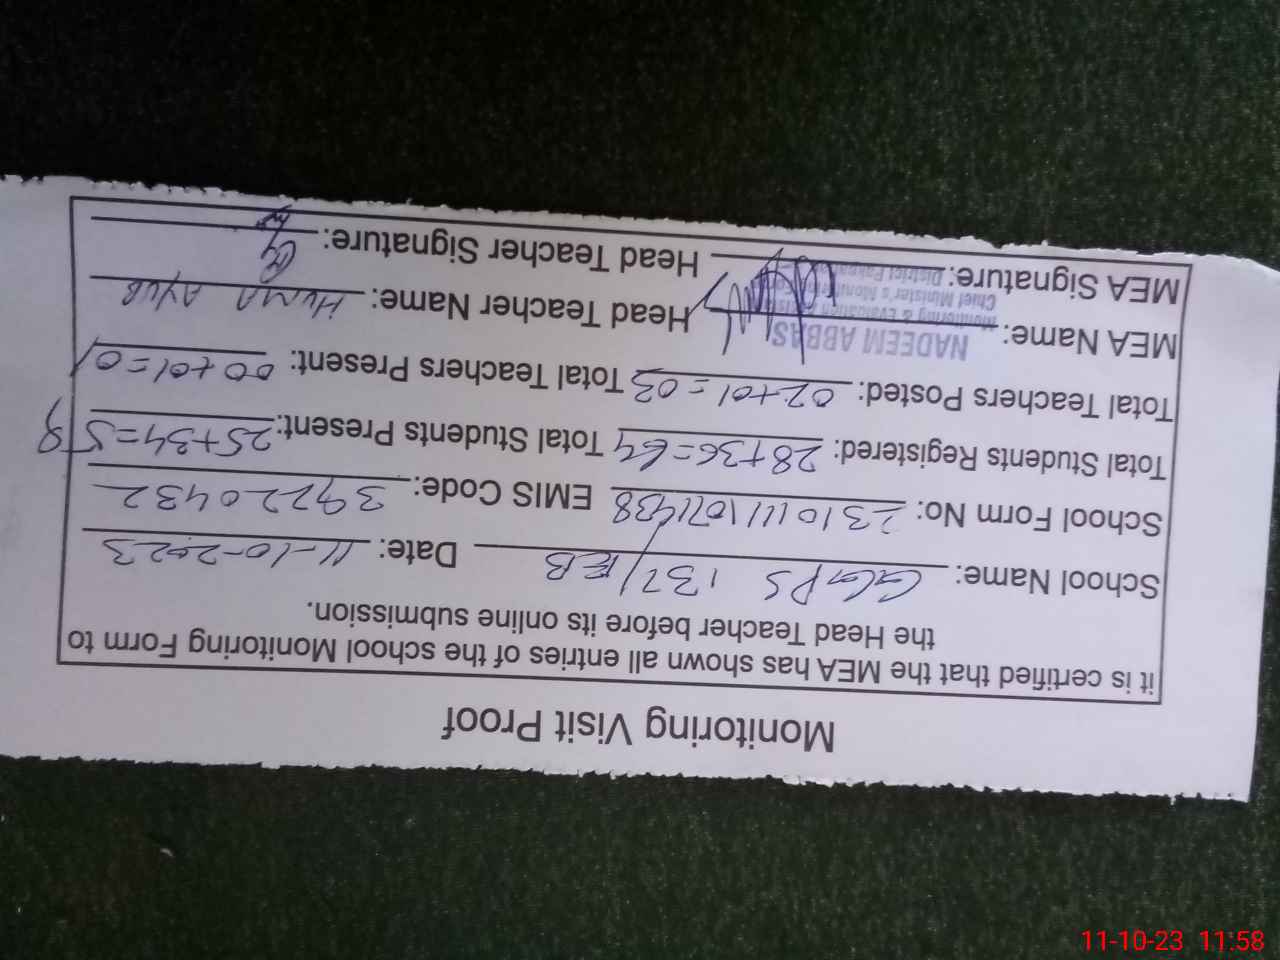 Monitoring Visit Proof
it is certified that the MEA has shown all entries of the school Monitoring Form to
the Head Teacher before its online submission.
School Name: GGPS 137/EB Date: 11-10-2023
School Form No: EMIS Code: 39220432
Total Students Registered: 28+36=64 Total Students Present: 25+34=59
Total Teachers Posted: 02+01=03 Total Teachers Present: 00+01=01
MEA Name: NADEEM ABBAS Head Teacher Name: HUMA AYUB
Monitoring & Evaluation
Chief Minister's Monitoring
District
MEA Signature: Head Teacher Signature:
11-10-23 11:58